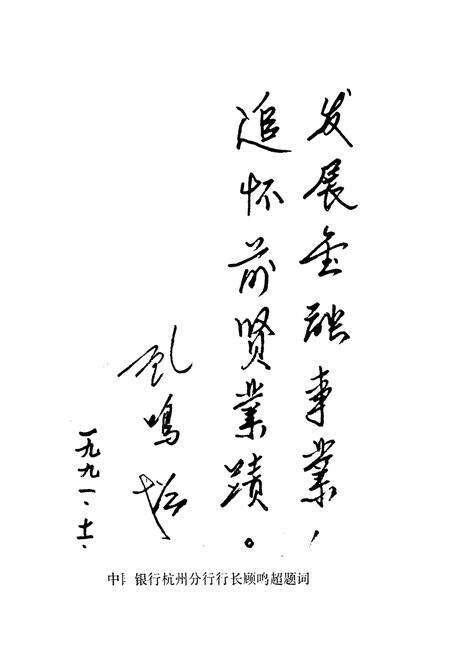 发展金融事業，
追怀前贤業蹟。
顾鸣超
一九九一、十一、
中 银行杭州分行行长顾鸣超题词